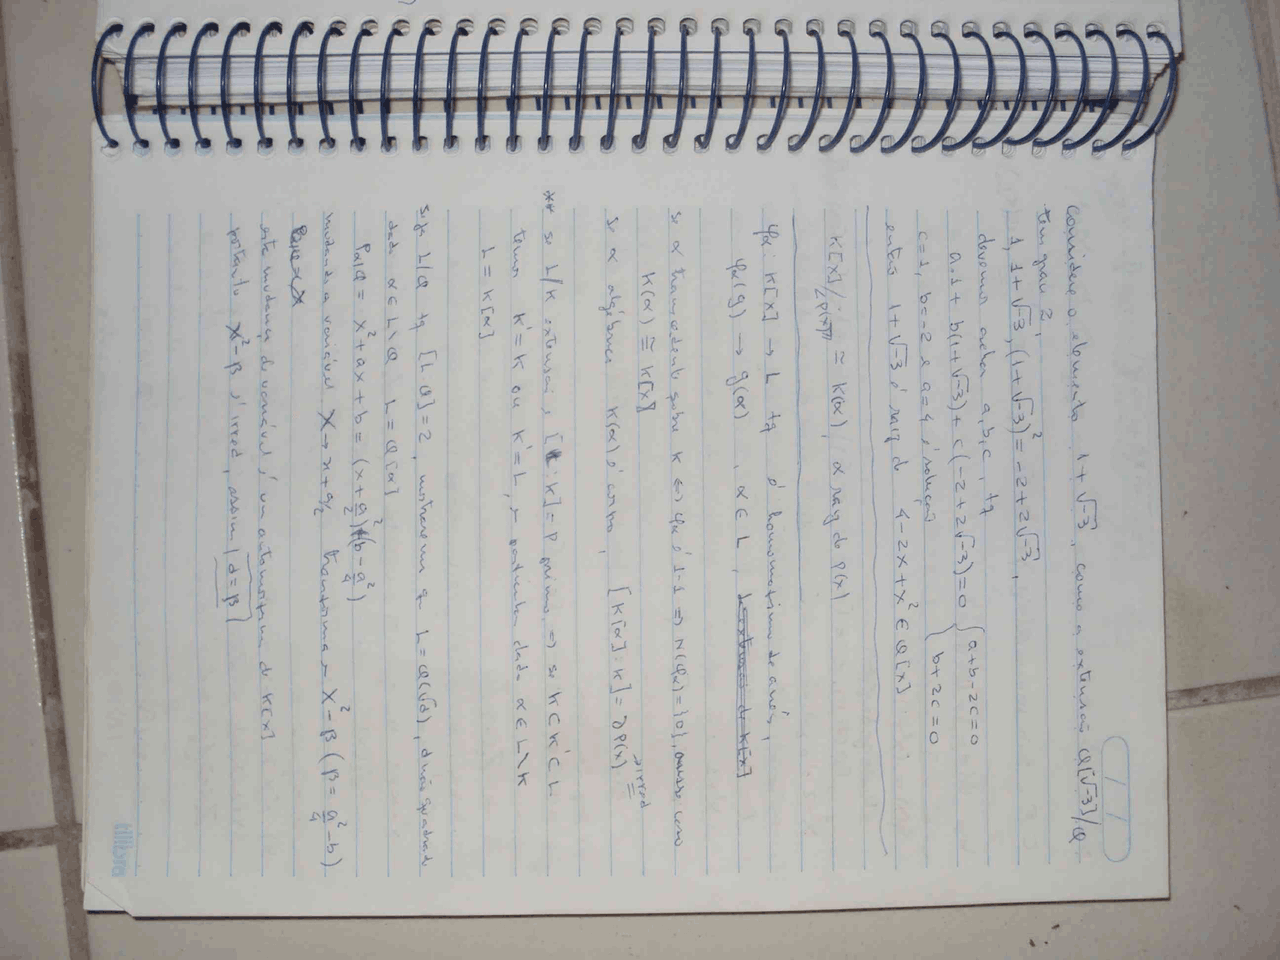 Considere o elemento 1+√-3, como a extensão Q[√-3]/Q
tem grau 2,
1, 1+√-3, (1+√-3)² = -2+2√-3,
devemos achar a,b,c, tq
a.1 + b(1+√-3) + c(-2+2√-3) = 0 { a+b-2c=0
b+2c=0
c=1, b=-2 e a=4 é solução
então 1+√-3 é raiz de 4-2x+x² ∈ Q[x].
K[x]/<p(x)> ≅ K(α), α raiz de p(x)
φα: K[x] → L tq é homomorfismo de anéis,
φα(g) → g(α), α ∈ L,
se α transcedente sobre K ⇔ φα é 1-1 ⇒ N(φα)={0}, nesse caso
K(α) ≅ K[x]
se α algébrico K(α) é corpo, [K[α]:K] = ∂p(x)
→ irred
** se L/K extensão, [L:K]=p primo ⇒ se K⊂K'⊂L
temos K'=K ou K'=L, em particular dado α∈L\K
L=K[α]
seja L/Q tq [L:Q]=2, mostremos q L=Q(√d), d não quadrado
dado α∈L\Q L=Q[α]
Pα|Q = x²+ax+b = (x+a/2)²+(b-a²/4)
mudando a variável x→x+a/2 transforma em x²-β (β=a²/4-b)
esta mudança de variável é um automorfismo de K[x]
portanto x²-β é irred, assim d=β
tilibra